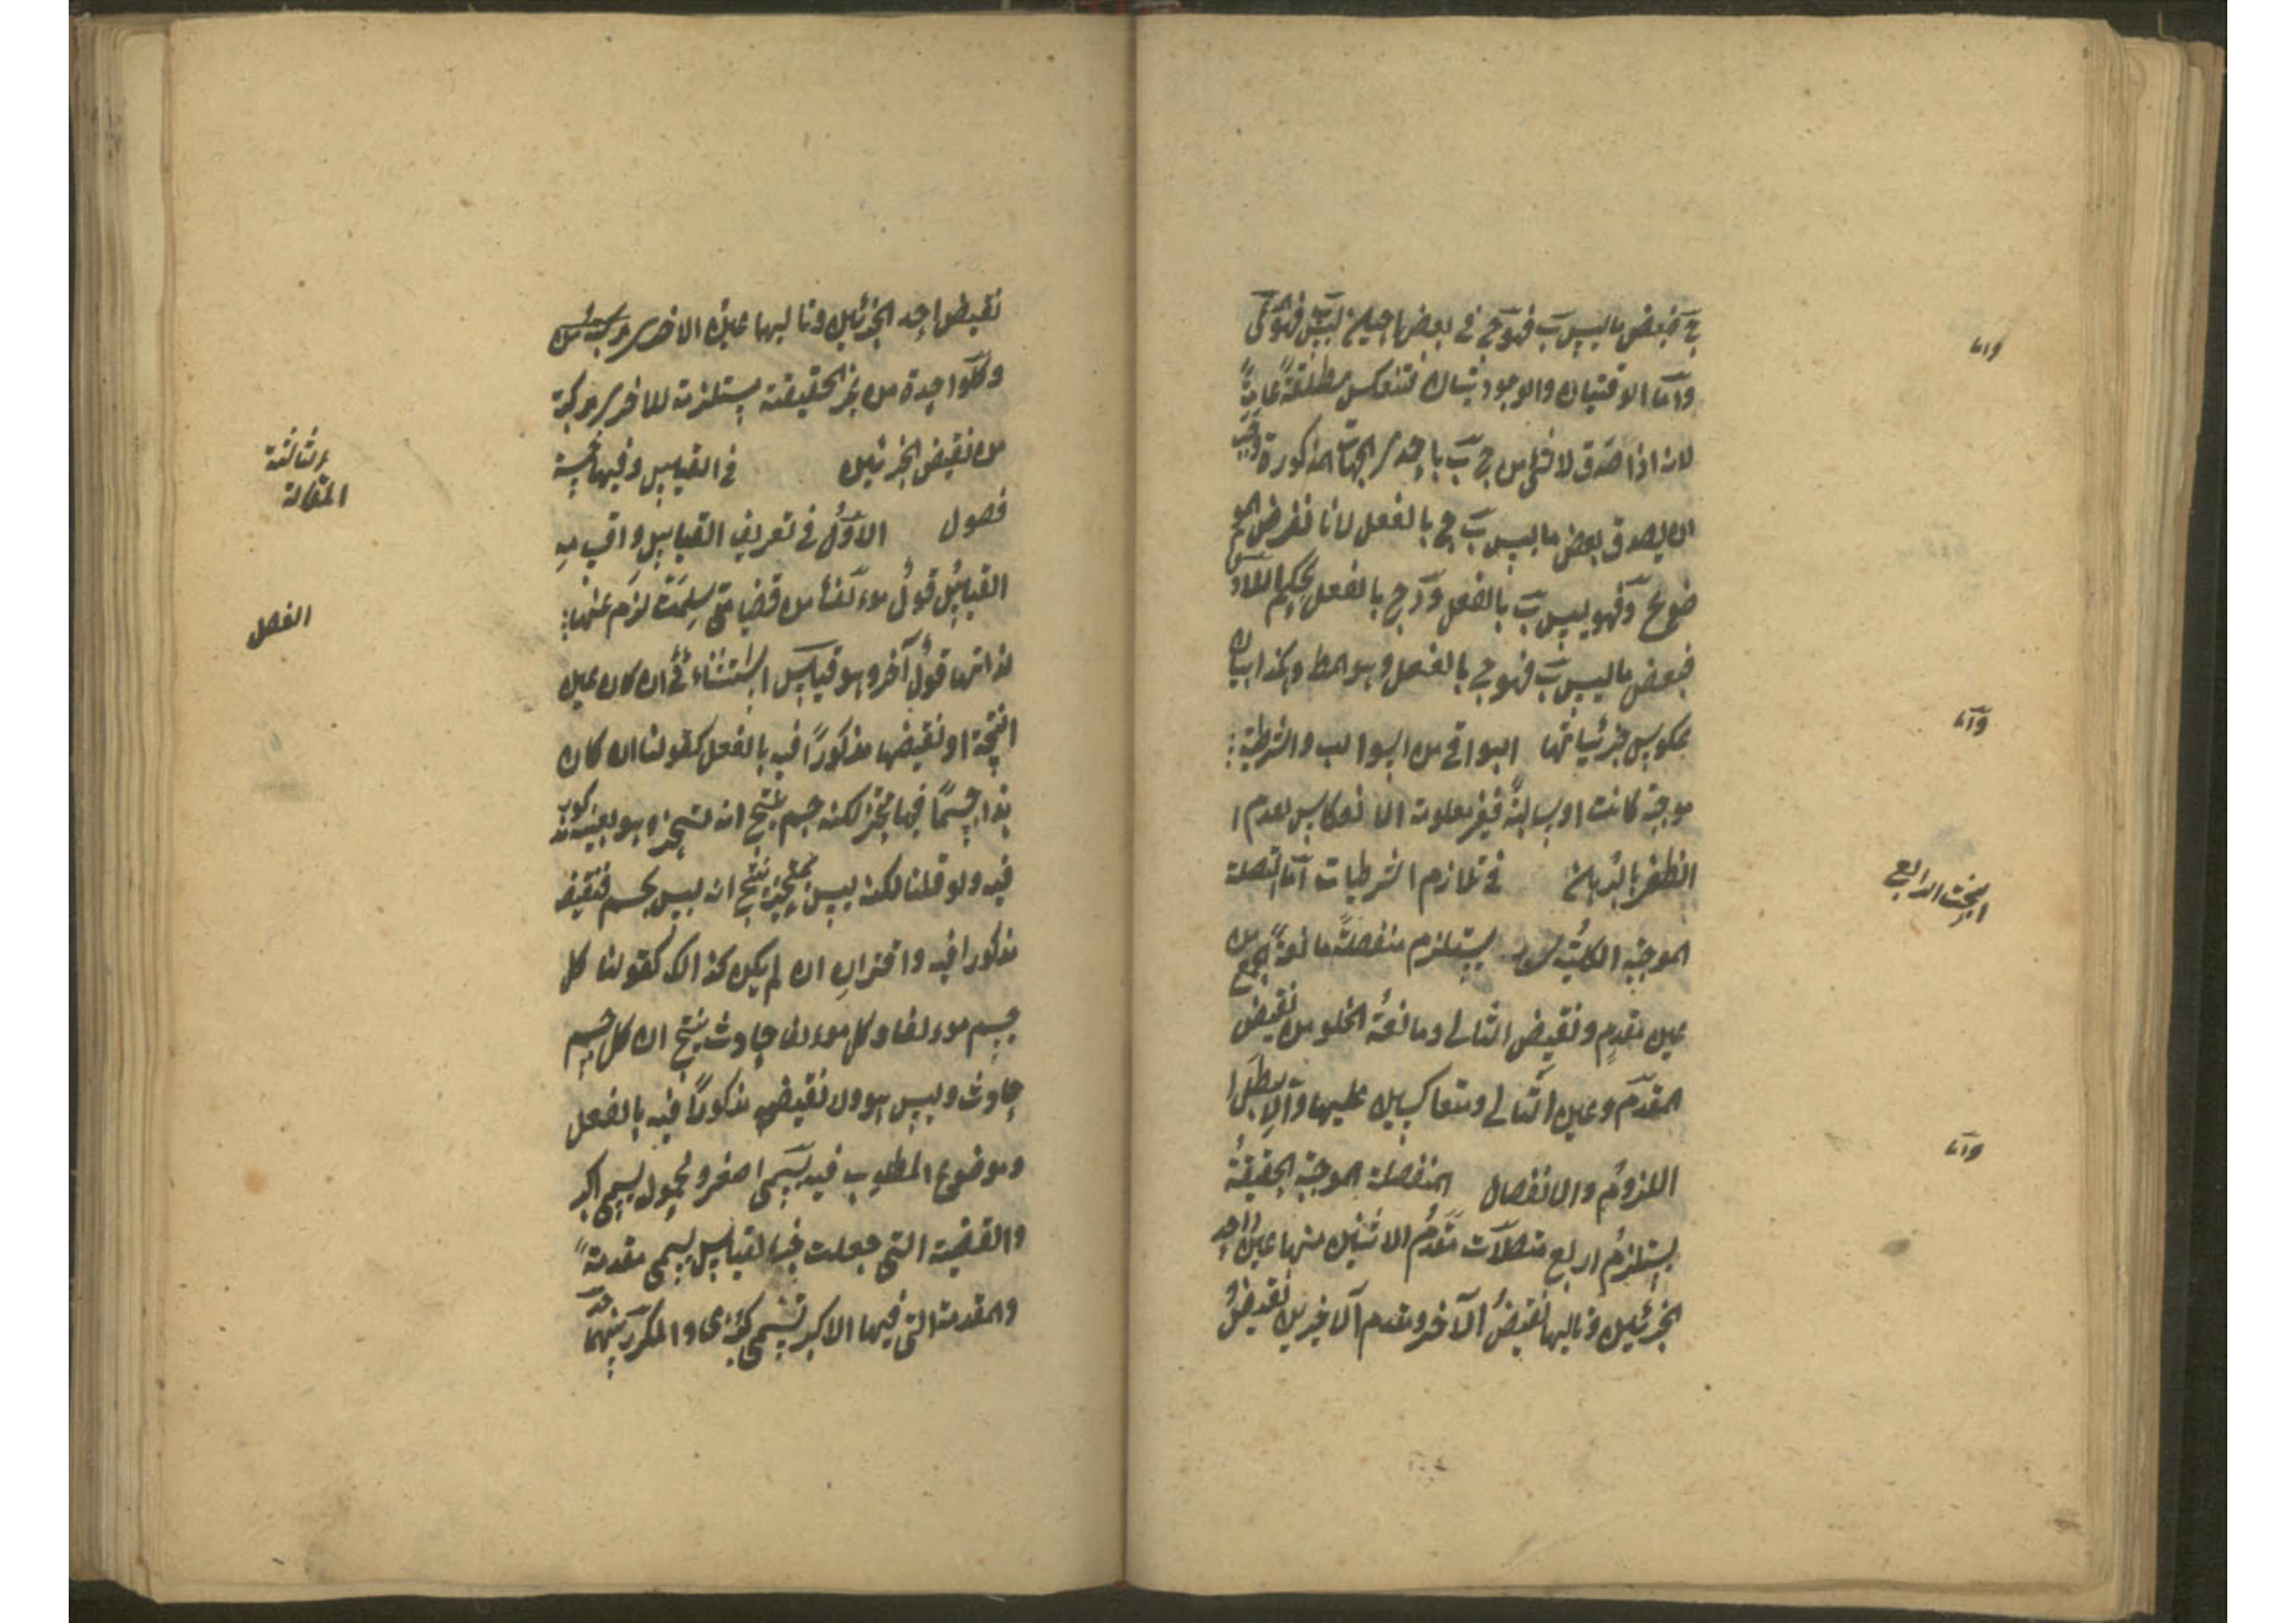 ج فبعض ما ليس ب فهو ج في بعض احيان ليس ب فهو المدعى
واما الوقتيتان والوجوديتان فتنعكس مطلقة عامة
لانه اذا صدق لا شئ من ج ب باحدى الجهات المذكورة وجب
ان يصدق بعض ما ليس ب ج بالفعل لانا نفرض المو
ضوع د فهو ليس ب بالفعل و د ج بالفعل بحكم اللادوام
فبعض ما ليس ب فهو ج بالفعل وهو المط وهكذا بيان
عكوس جزئياتها البواقي من السوالب والشرطية
موجبة كانت او سالبة فغير معلومة الانعكاس لعدم ا
الظفر بالبرهان في تلازم الشرطيات اما المتصلة
الموجبة الكلية يستلزم منفصلة مانعة الجمع من
عين مقدم ونقيض التالي ومانعة الخلو من نقيض
المقدم وعين التالي ومتعاكسين عليها والا لبطل ا
اللزوم والانفصال المنفصلة الموجبة الحقيقة
يستلزم اربع متصلات مقدم الاثنين منها عين احد
الجزئين وتاليها نقيض الآخر ومقدم الآخرين نقيض
واما
واما
البحث الرابع
واما
نقيض احد الجزئين وتاليها عين الاخرى مركبة من
وكل واحدة من غير الحقيقة يستلزمة للاخرى مركبة
من نقيض الجزئين في القياس وفيها خمسة
فصول الاول في تعريف القياس واقسامه
القياس قول موءلف من قضايا متى سلمت لزم عنها
لذاتها قول آخر وهو قياس استثنائي ان كان عين
النتيجة او نقيضها مذكورا فيه بالفعل كقولنا ان كان
هذا جسما فهو متحيز لكنه جسم ينتج انه متحيز وهو بعينه مذكور
فيه ولو قلنا لكنه ليس بمتحيز ينتج انه ليس بجسم فنقيضه
مذكورا فيه واقتراني ان لم يكن كذالك كقولنا كل
جسم موءلف وكل موءلف حادث ينتج ان كل جسم
حادث وليس هو ولا نقيضه مذكورا فيه بالفعل
وموضوع المطلوب فيه يسمى اصغر ومحموله يسمى اكبر
والقضية التي جعلت جزء القياس يسمى مقدمة
والمقدمة التي فيها الاكبر تسمى كبرى والمكرر بينهما حد
الثالثة
المقالة
الفصل